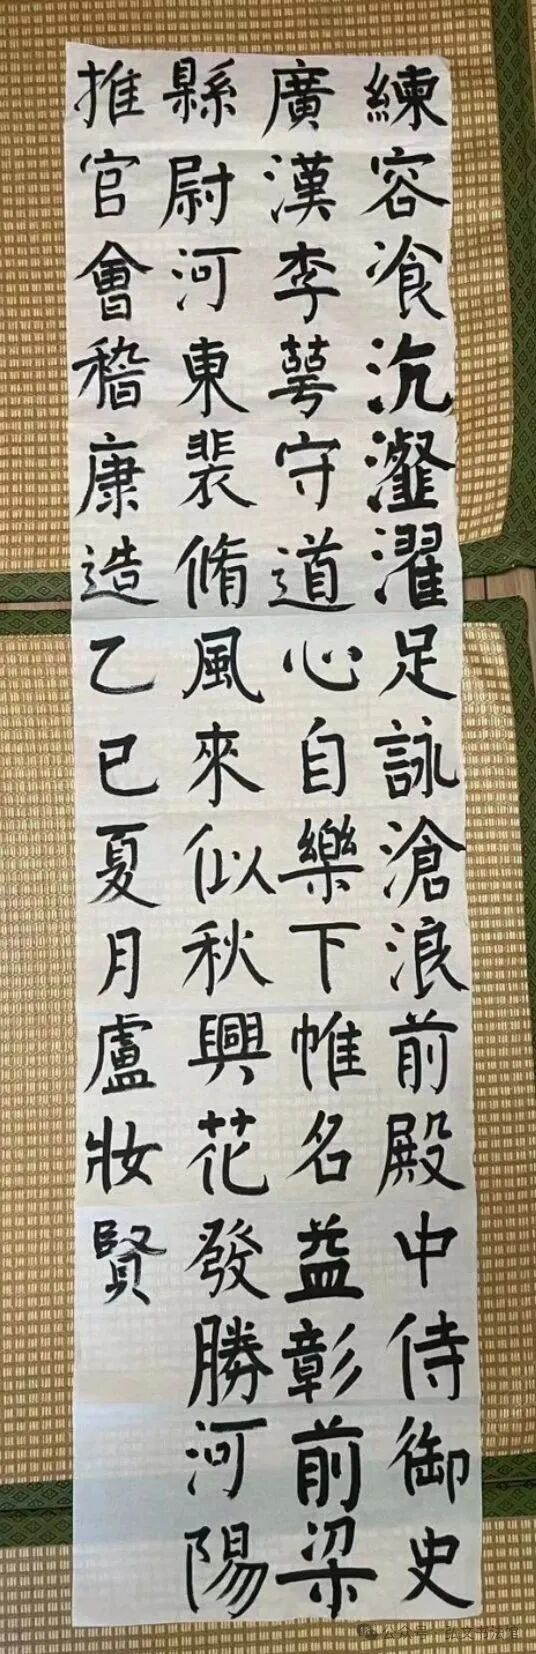 練容飡沆瀣濯足詠滄浪前殿中侍御史
廣漢李萼守道心自樂下帷名益彰前梁
縣尉河東裴脩風來似秋興花發勝河陽
推官會稽康造乙巳夏月盧妝賢
公众号·弘文书法馆